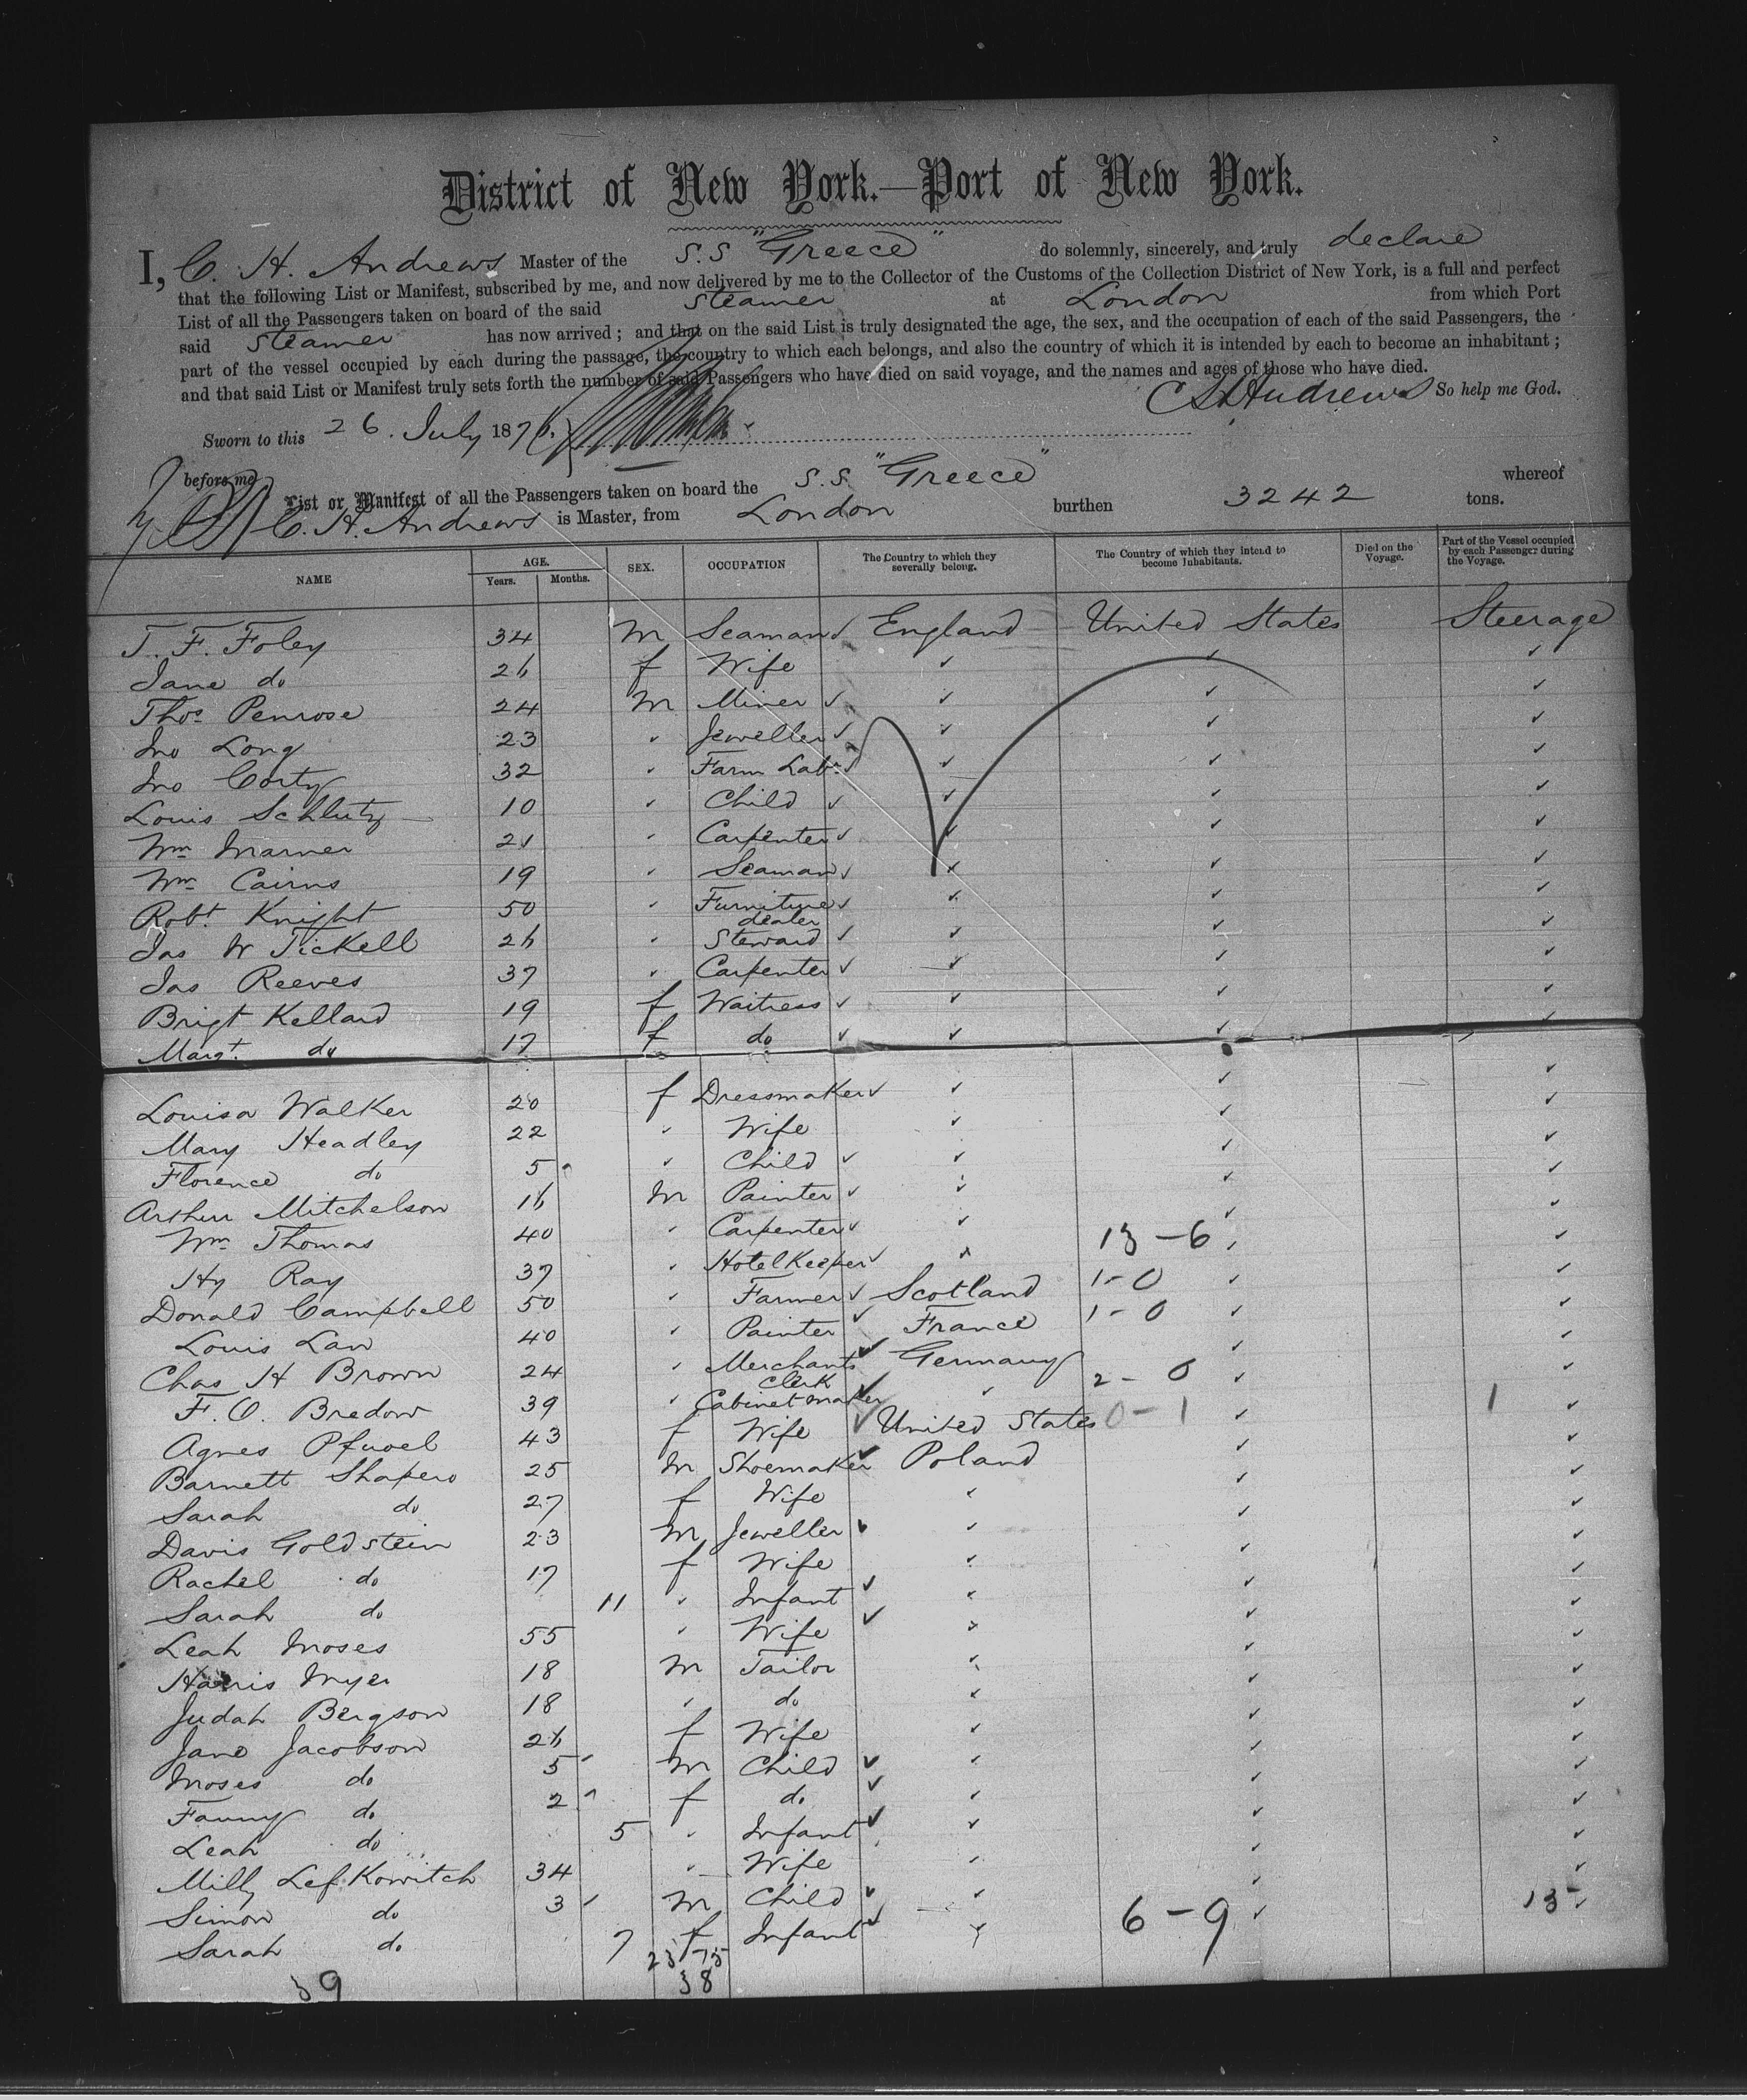 District of New York.—Port of New York.
I, C. H. Andrews Master of the S.S "Greece" do solemnly, sincerely, and truly declare
that the following List or Manifest, subscribed by me, and now delivered by me to the Collector of the Customs of the Collection District of New York, is a full and perfect
List of all the Passengers taken on board of the said Steamer at London from which Port
said Steamer has now arrived; and that on the said List is truly designated the age, the sex, and the occupation of each of the said Passengers, the
part of the vessel occupied by each during the passage, the country to which each belongs, and also the country of which it is intended by each to become an inhabitant;
and that said List or Manifest truly sets forth the number of said Passengers who have died on said voyage, and the names and ages of those who have died.
CH Andrews So help me God.
Sworn to this 26. July 1876.
before me
List or Manifest of all the Passengers taken on board the S.S. "Greece" whereof
C. H. Andrews is Master, from London burthen 3242 tons.
NAME AGE. Years. Months. SEX. OCCUPATION The Country to which they severally belong. The Country of which they intend to become Inhabitants. Died on the Voyage. Part of the Vessel occupied by each Passenger during the Voyage.
T. F. Foley 34 M Seaman ✓ England United States Steerage
Jane do 26 f Wife ✓ ✓ ✓
Thos Penrose 24 M Miner ✓ ✓ ✓ ✓
Jno Long 23 " Jeweller ✓ ✓ ✓ ✓
Jno Corty 32 " Farm Labr ✓ ✓ ✓ ✓
Louis Schlutz 10 " Child ✓ ✓ ✓ ✓
Wm Marner 21 " Carpenter ✓ ✓ ✓ ✓
Wm Cairns 19 " Seaman ✓ ✓ ✓ ✓
Robt Knight 50 " Furniture dealer ✓ ✓ ✓ ✓
Jas W Tickell 26 " Steward ✓ ✓ ✓ ✓
Jas Reeves 37 " Carpenter ✓ ✓ ✓ ✓
Brigt Kellard 19 f Waitress ✓ ✓ ✓ ✓
Margt. do 17 f do ✓ ✓ ✓ ✓
Louisa Walker 20 f Dressmaker ✓ ✓ ✓ ✓
Mary Headley 22 " Wife ✓ ✓ ✓
Florence do 5 " Child ✓ ✓ ✓ ✓
Arthur Mitchelson 16 M Painter ✓ ✓ ✓ ✓
Wm Thomas 40 " Carpenter ✓ ✓ ✓ ✓
Hy Ray 37 " Hotel Keeper ✓ ✓ 13-6 ✓ ✓
Donald Campbell 50 " Farmer ✓ Scotland 1-0 ✓ ✓
Louis Law 40 " Painter ✓ France 1-0 ✓ ✓
Chas H Brown 24 " Merchants Clerk ✓ Germany ✓ ✓
F. O. Bredow 39 " Cabinet maker ✓ ✓ 2-0 ✓ ✓
Agnes Pfuoel 43 f Wife ✓ United States 0-1 ✓ 1 ✓
Barnett Shapero 25 M Shoemaker ✓ Poland ✓ ✓
Sarah do 27 f Wife ✓ ✓ ✓
Davis Goldstein 23 M Jeweller ✓ ✓ ✓ ✓
Rachel do 17 f Wife ✓ ✓ ✓
Sarah do 11 " Infant ✓ ✓ ✓ ✓
Leah Moses 55 " Wife ✓ ✓ ✓ ✓
Harris Myer 18 M Tailor ✓ ✓ ✓
Judah Bergson 18 " do ✓ ✓ ✓
Jane Jacobson 26 f Wife ✓ ✓ ✓
Moses do 5 M Child ✓ ✓ ✓ ✓
Fanny do 2 f do ✓ ✓ ✓ ✓
Leah do 5 " Infant ✓ ✓ ✓ ✓
Milly Lefkowitch 34 " Wife ✓ ✓ ✓
Simon do 3 M Child ✓ ✓ ✓ ✓
Sarah do 7 f Infant ✓ ✓ 6-9 ✓ 13 ✓
39 38